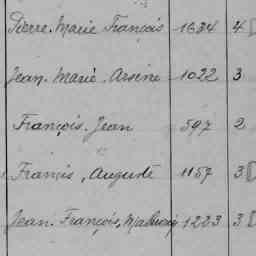 Pierre-Marie François 1634 4
Jean-Marie-Arsène 1022 3
François-Jean 597 2
Francis, Auguste 1157 3
Jean-François, Mathurin 1283 3